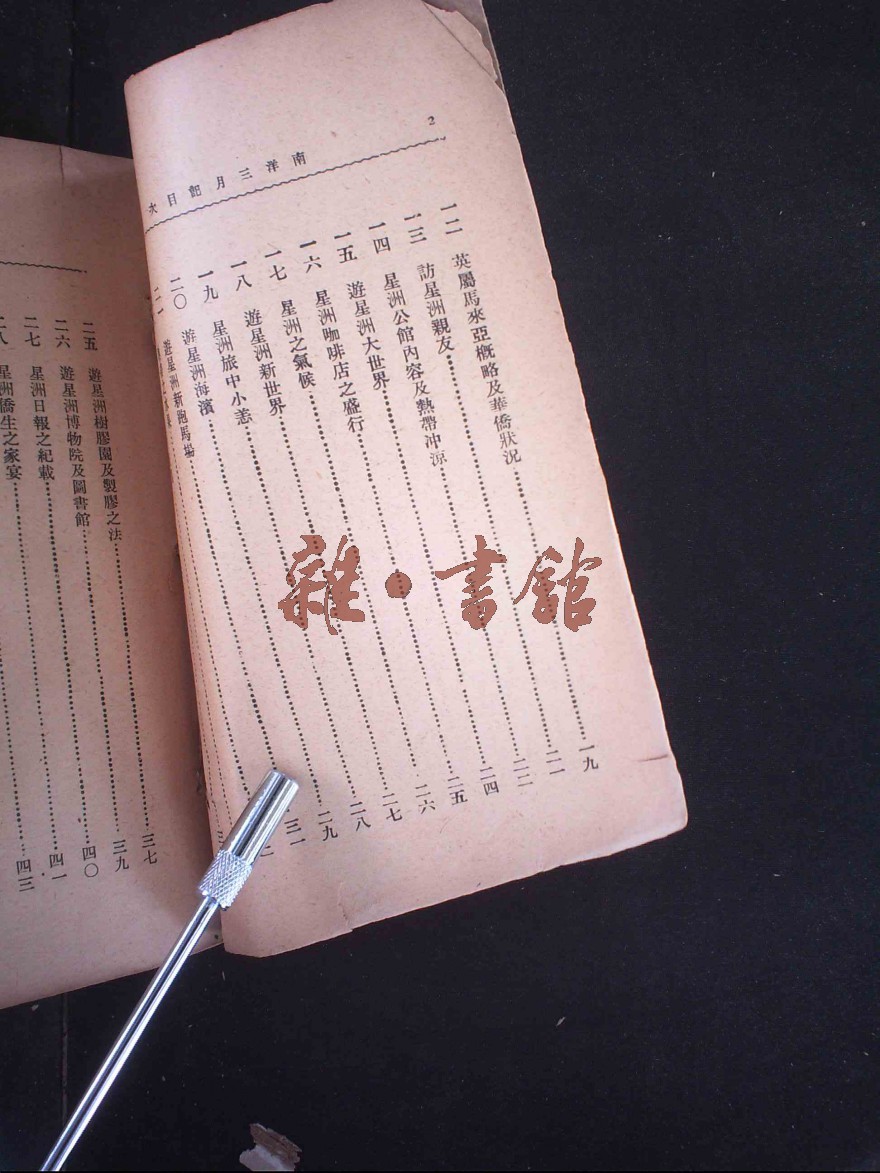 2
南洋三月記目次
一二 英屬馬來亞概略及華僑狀況 一九
一三 訪星洲親友 二一
一四 星洲公館內容及熱帶冲凉 二二
一五 遊星洲大世界 二四
一六 星洲咖啡店之盛行 二五
一七 星洲之氣候 二六
一八 遊星洲新世界 二七
一九 星洲旅中小恙 二八
二〇 遊星洲海濱 二九
二一 遊星洲新跑馬場 三一
二五 遊星洲樹膠園及製膠之法 三七
二六 遊星洲博物院及圖書館 三九
二七 星洲日報之紀載 四〇
二八 星洲僑生之家宴 四一
四三
雜·書館